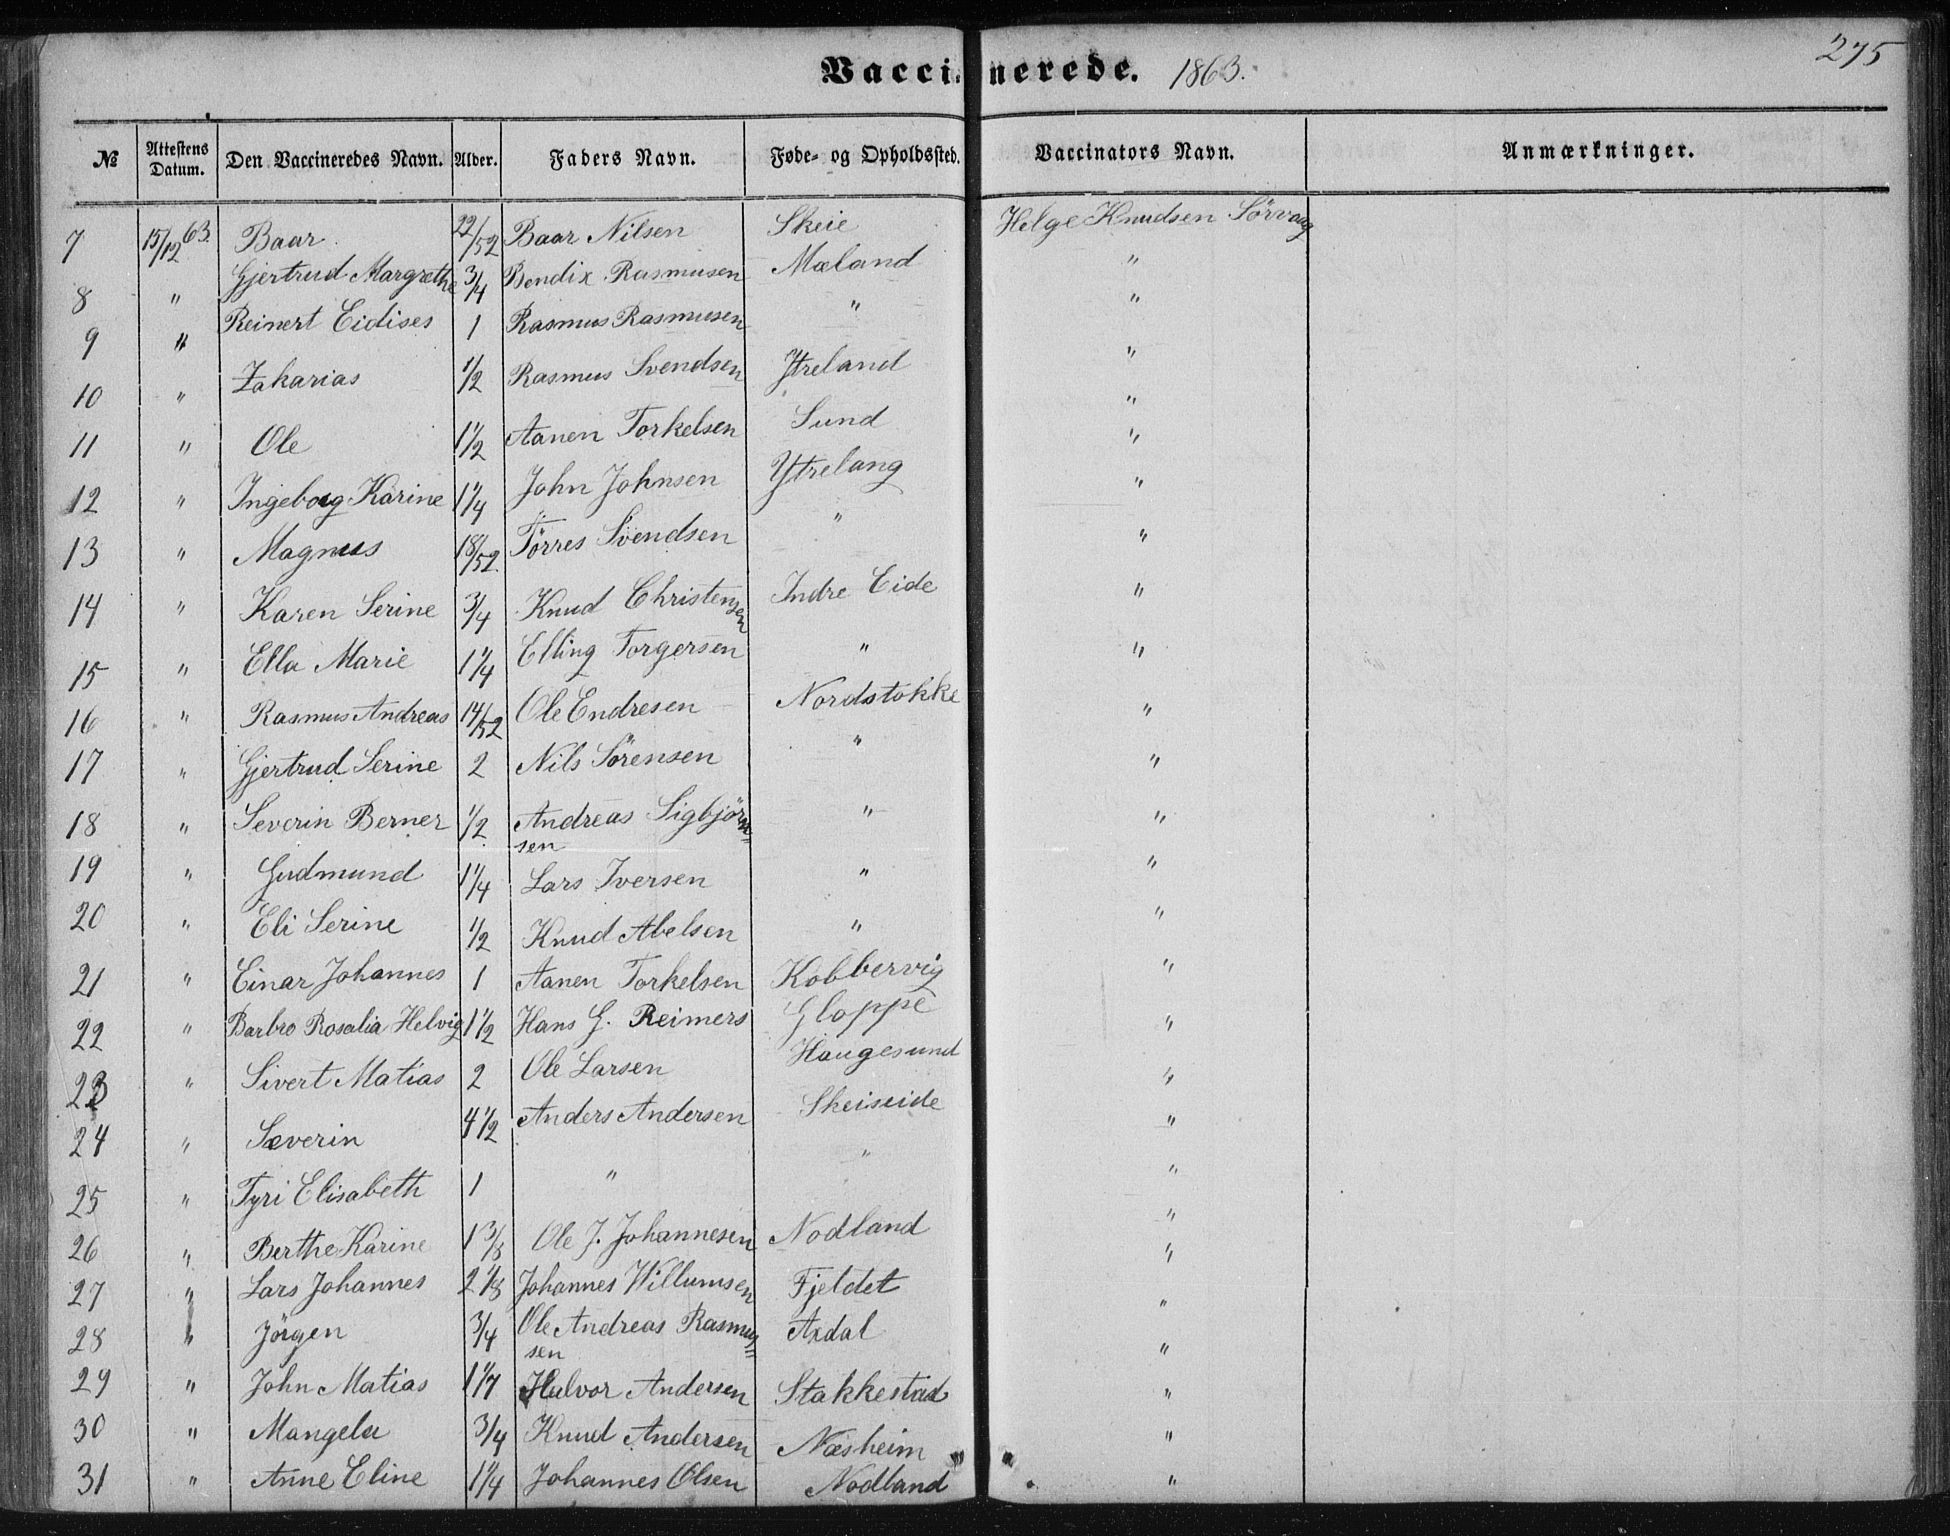 275
Vaccinerede. 1863.
№ Attestens Datum. Den Vaccineredes Navn. Alder. Faders Navn. Føde- og Opholdssted. Vaccinators Navn. Anmærkninger.
7 15/12 63. Baar 22/52 Baar Nilsen Skeie Helge Knudsen Sörvaag
8 " Gjertrud Margrethe 3/4 Bendix Rasmusen Mæland "
9 " Reinert Eidises 1 Rasmus Rasmusen " "
10 " Zakarias 1/2 Rasmus Svendsen Ytreland "
11 " Ole 1 1/2 Aanen Torkelsen Sund "
12 " Ingeborg Karine 1 1/4 John Johnsen Ytrelang "
13 " Magnus 18/52. Törres Svendsen " "
14 " Karen Serine 3/4 Knud Christensen Indre Eide "
15 " Ella Marie 1 1/4 Elling Torgersen " "
16 " Rasmus Andreas 14/52 Ole Endresen Nordstokke "
17 " Gjertrud Serine 2 Nils Sörensen " "
18 " Severin Berner 1/2 Andreas Sigbjörn=
sen " "
19 " Gudmund 1 1/4 Lars Iversen " "
20 " Eli Serine 1/2 Knud Abelsen " "
21 " Einar Johannes 1 Aanen Torkelsen Kobbervig "
22 " Barbro Rosalia Helvig 1 1/2 Hans G. Reimers Gloppe "
23 " Sivert Matias 2 Ole Larsen Haugesund "
24 " Severin 4 1/2 Anders Andersen Skeiseide "
25 " Tyri Elisabeth 1 " " "
26 " Berthe Karine 1 3/8 Ole J. Johannesen Nodland "
27 " Lars Johannes 2 1/8 Johannes Willumsen Fjeldet "
28 " Jörgen 3/4 Ole Andreas Rasmus=
sen Axdal "
29 " John Matias 1 1/7 Halvor Andersen Stakkestad "
30 " Mangela 3/4 Knud Andersen Næsheim "
31 " Anne Eline 1 1/4 Johannes Olsen Nodland "